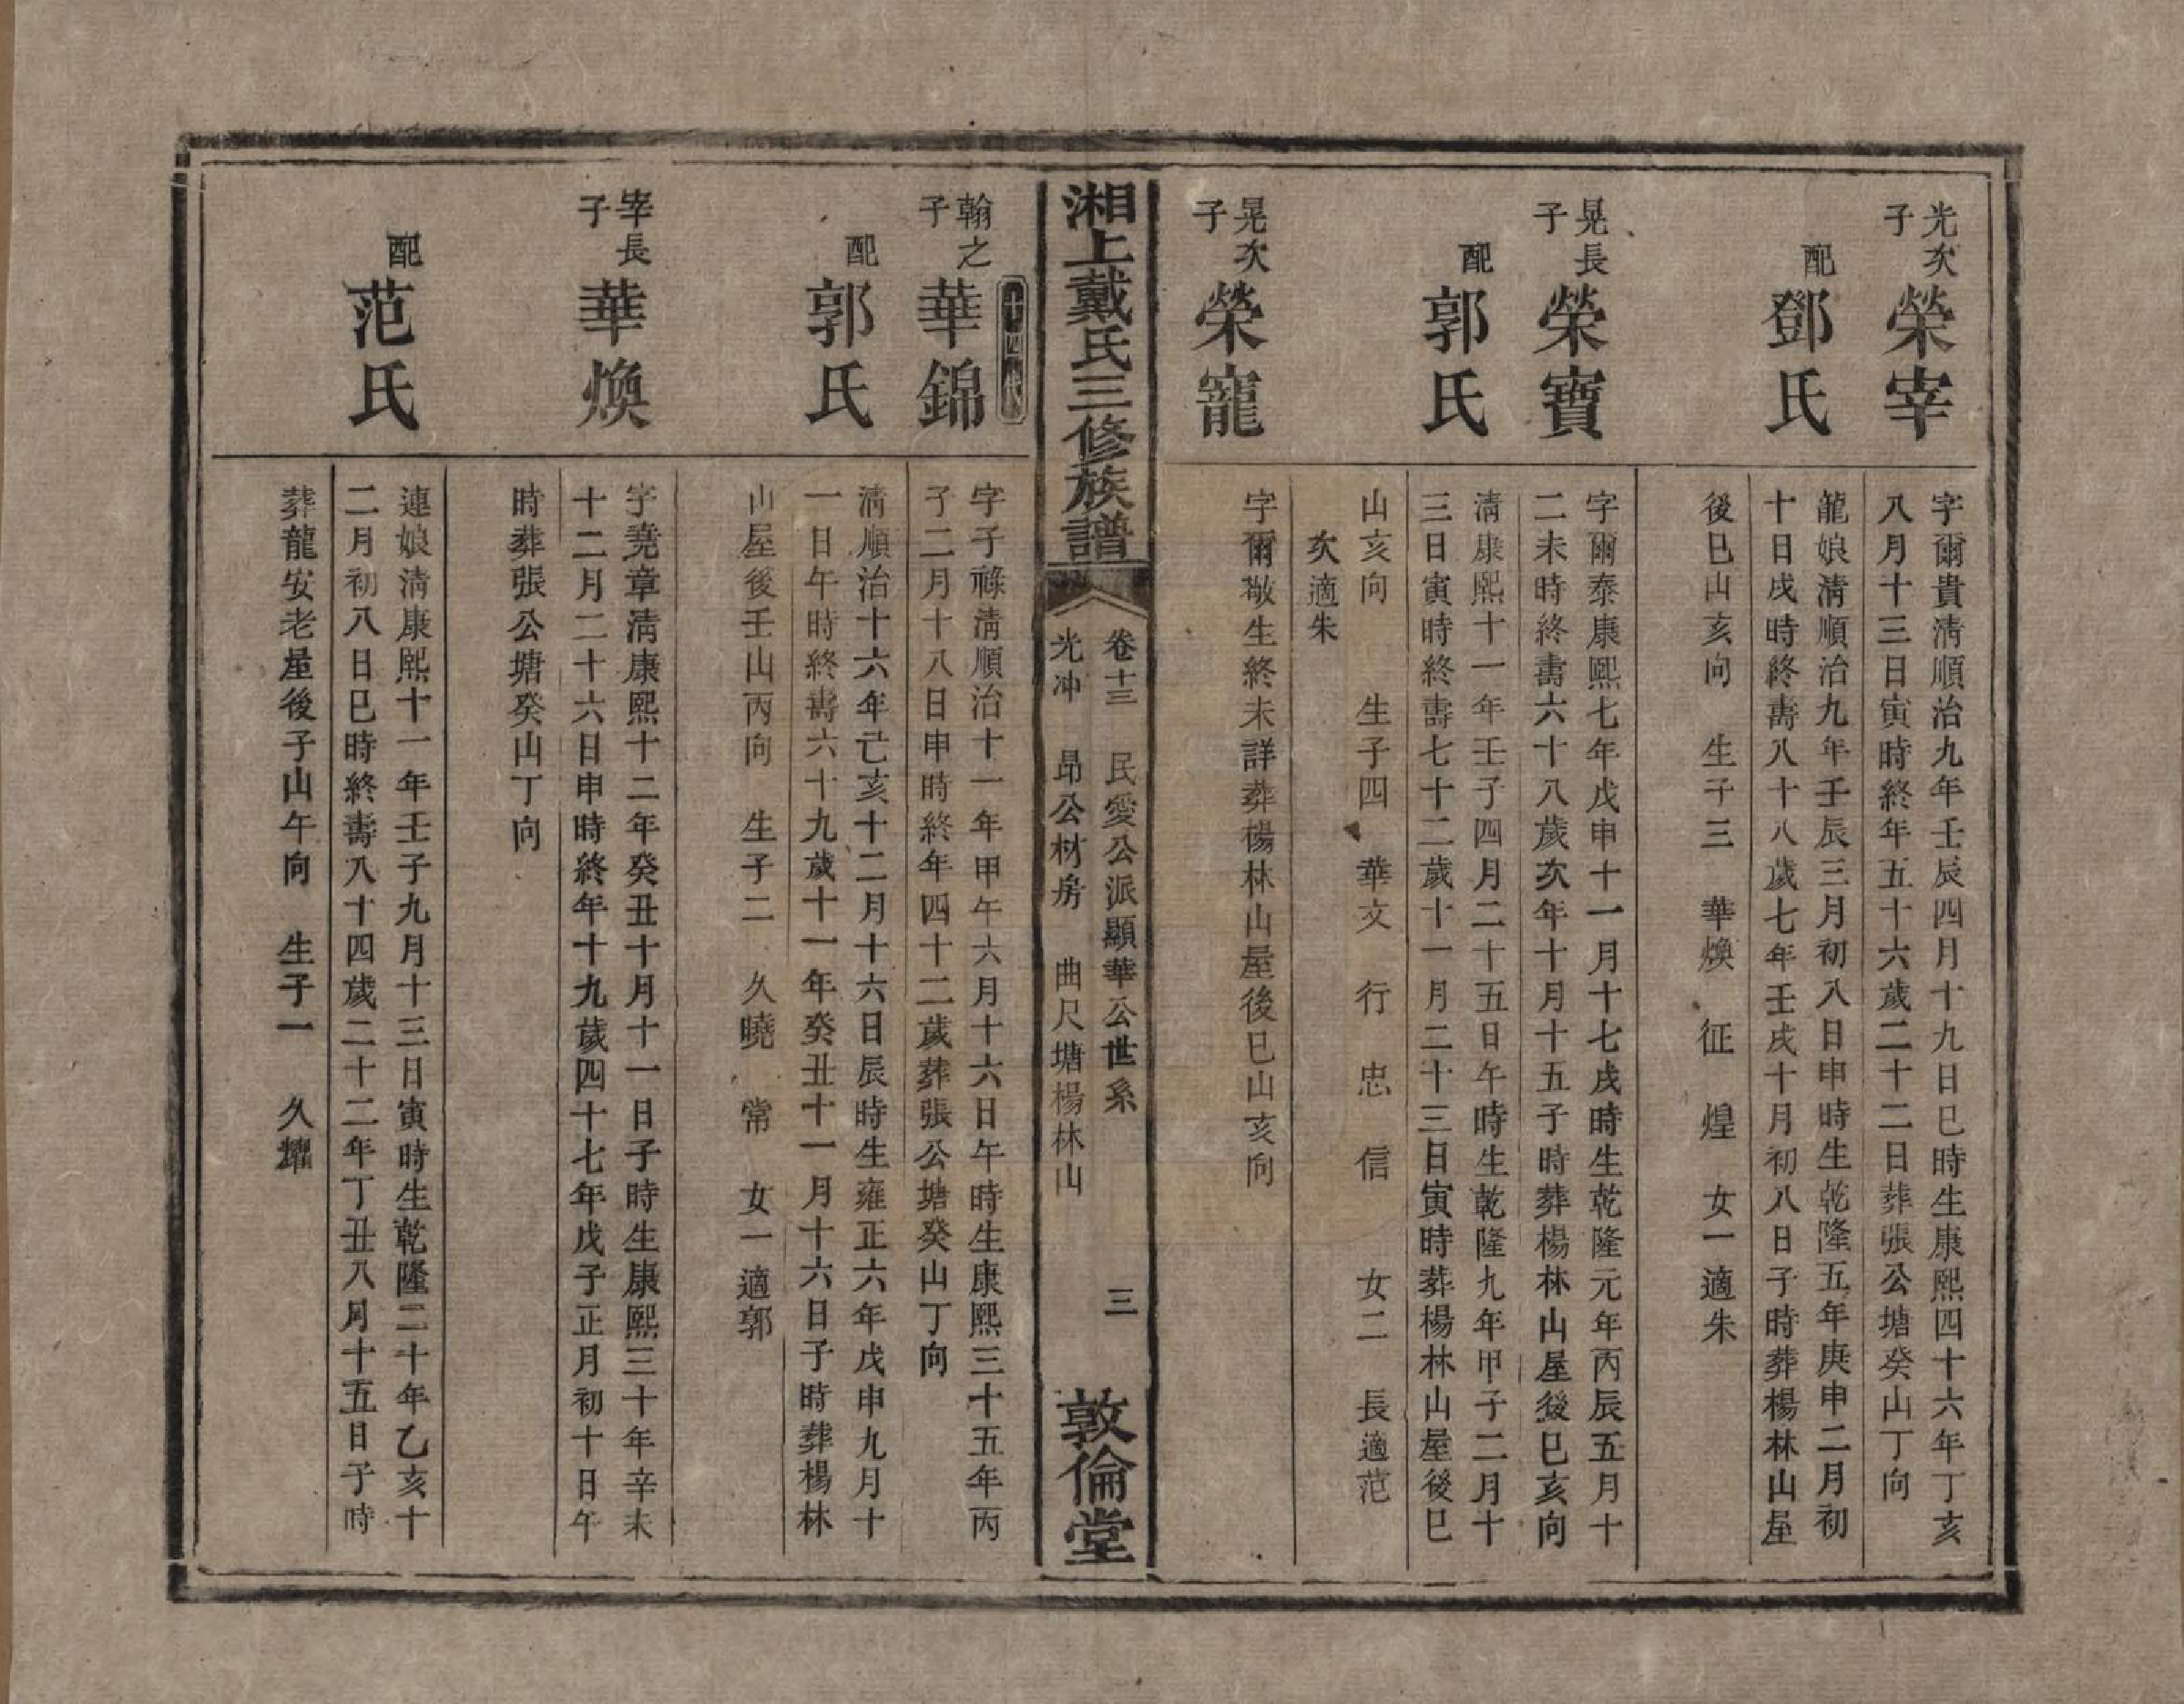 光次子
榮宰
字爾貴淸順治九年壬辰四月十九日巳時生康熙四十六年丁亥
八月十三日寅時終年五十六歲二十二日葬張公塘癸山丁向
配
鄧氏
龍娘淸順治九年壬辰三月初八日申時生乾隆五年庚申二月初
十日戌時終壽八十八歲七年壬戌十月初八日子時葬楊林山屋
後巳山亥向 生子三 華煥 征 煌 女一適朱
晃長子
榮寶
字爾泰康熙七年戊申十一月十七戌時生乾隆元年丙辰五月十
二未時終壽六十八歲次年十月十五子時葬楊林山屋後巳亥向
配
郭氏
淸康熙十一年壬子四月二十五日午時生乾隆九年甲子二月十
三日寅時終壽七十二歲十一月二十三日寅時葬楊林山屋後巳
山亥向 生子四 華文 行 忠 信 女二 長適范
次適朱
晃次子
榮寵
字爾敬生終未詳葬楊林山屋後巳山亥向
湘上戴氏三修族譜
卷十三 民愛公派顯華公世系 三
光冲 昻公材房 曲尺塘楊林山
敦倫堂
十四代
翰之子
華錦
字子祿淸順治十一年甲午六月十六日午時生康熙三十五年丙
子二月十八日申時終年四十二歲葬張公塘癸山丁向
配
郭氏
淸順治十六年己亥十二月十六日辰時生雍正六年戊申九月十
一日午時終壽六十九歲十一年癸丑十一月十六日子時葬楊林
山屋後壬山丙向 生子二 久曉 常 女一適郭
宰長子
華煥
字堯章淸康熙十二年癸丑十月十一日子時生康熙三十年辛未
十二月二十六日申時終年十九歲四十七年戊子正月初十日午
時葬張公塘癸山丁向
配
范氏
連娘淸康熙十一年壬子九月十三日寅時生乾隆二十年乙亥十
二月初八日巳時終壽八十四歲二十二年丁丑八月十五日子時
葬龍安老屋後子山午向 生子一 久耀